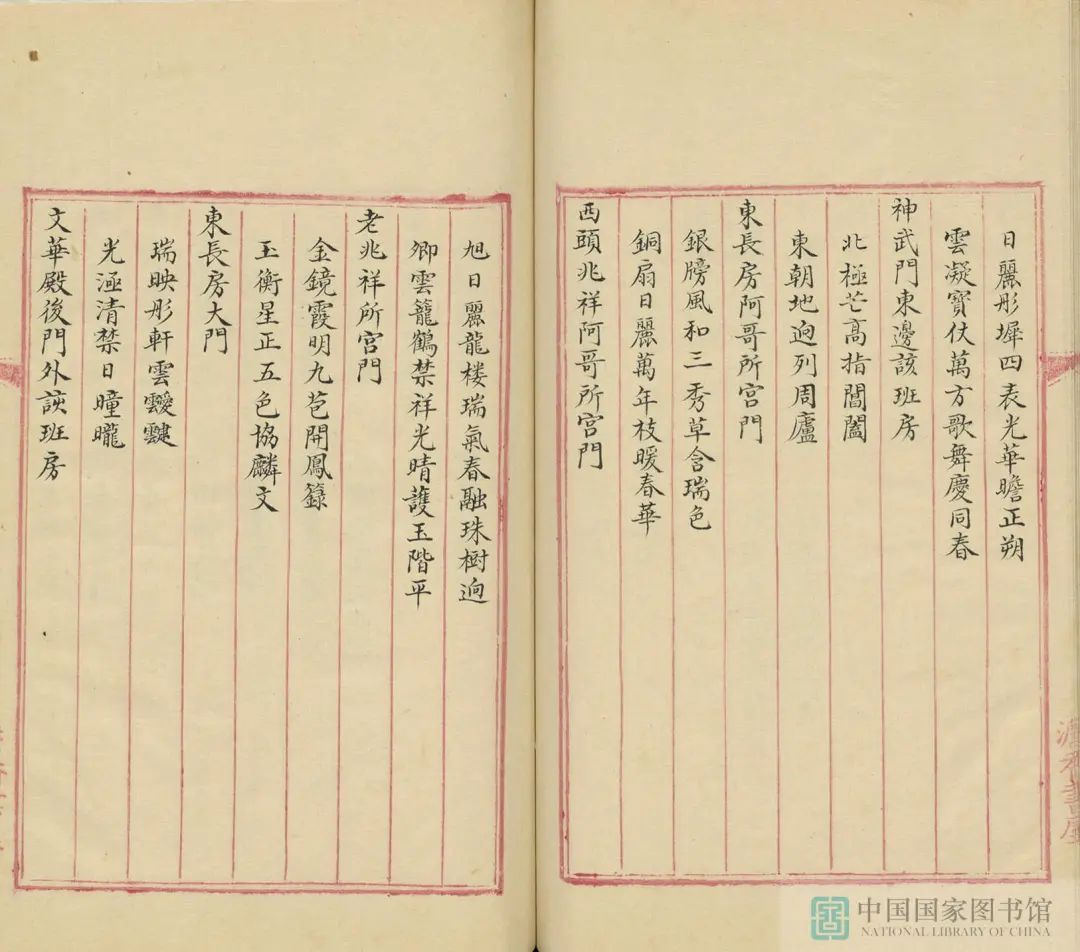 日麗彤墀四表光華瞻正朔
雲凝寶仗萬方歌舞慶同春
神武門東邊該班房
北極芒高指閶闔
東朝地迥列周廬
東長房阿哥所宮門
銀牓風和三秀草含瑞色
銅扇日麗萬年枝暖春華
西頭兆祥阿哥所宮門
旭日麗龍楼瑞氣春融珠樹迥
卿雲籠鶴禁祥光晴護玉階平
老兆祥所宮門
金鏡霞明九苞開鳳籙
玉衡星正五色協麟文
東長房大門
瑞映彤軒雲靉靆
光涵清禁日曈曨
文華殿後門外該班房
中国国家图书馆
NATIONAL LIBRARY OF CHINA